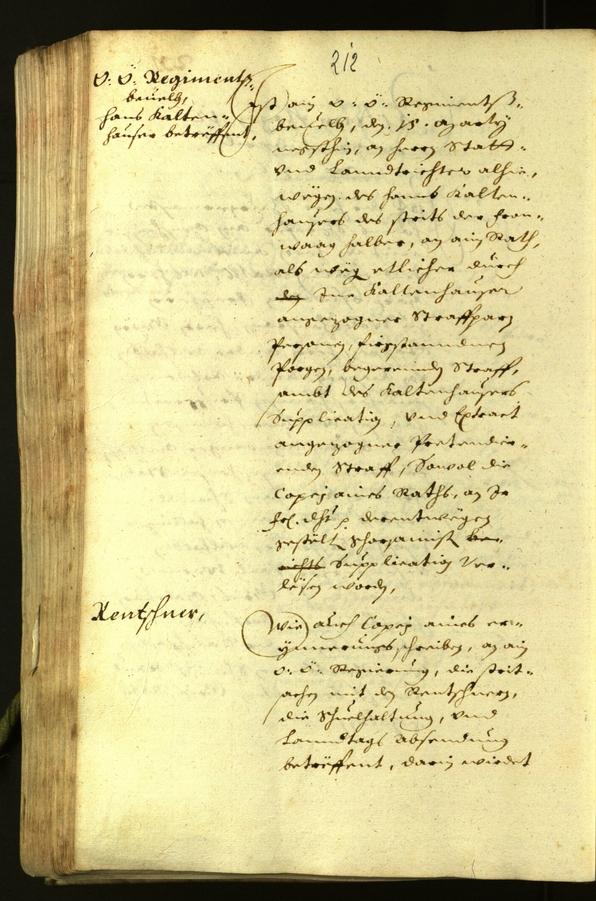 212
O: Ö: Regiments,
beuelh,
hans Kalten=
hauser betreffent,
Ist ain o: ö: Regiments=
beuelh, den 18. Marty
negsthin, an herrn Statt=
vnd Lanndtrichter alhie,
wegen des hanns Kalten=
hausers des strits der fron=
waag halber, an ain Rath,
als weg etlicher durch
Ine Kaltenhauser
angezogner Straffparn
Personen,
begerenden Straff,
sambt des Kaltenhausers
Supplication, vnd Extract
angezogner Pretendier=
enden Straff, Sowol die
Copej aines Raths, an Ir
frl. dht p derentwegen
gestelt
Supplication Ver=
lesen worden,
Rentschner,
Wie auch Copej aines er=
ynnerungsschreiben, an ain
o: ö: Regierung, die strit=
sachen mit den Rentschnern,
die Schuelhaltung, vnd
Lanndtags absendung
betreffent, darin wirdet